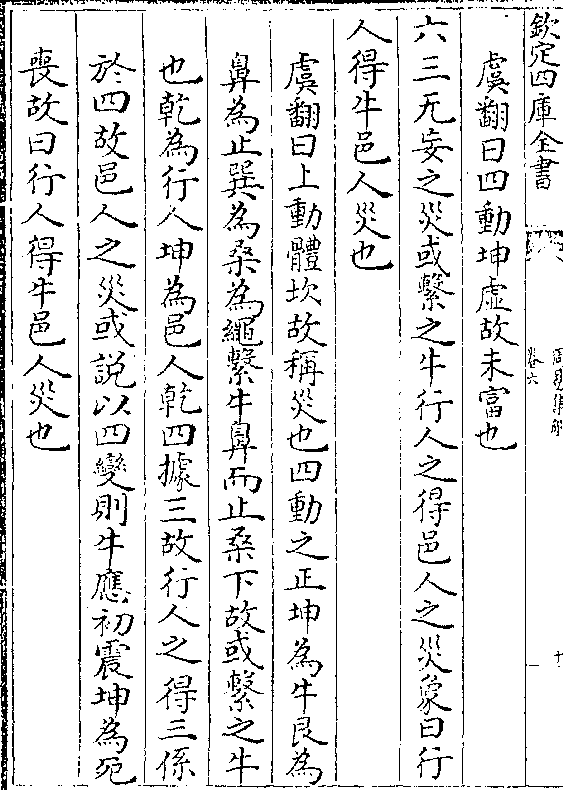 欽定四庫全書
周易集解
卷六
十一
虞翻曰四動坤虛故未富也
六三无妄之災或繫之牛行人之得邑人之災象曰行
人得牛邑人災也
虞翻曰上動體坎故稱災也四動之正坤為牛艮為
鼻為止巽為桑為繩繫牛鼻而止桑下故或繫之牛
也乾為行人坤為邑人乾四據三故行人之得三係
於四故邑人之災或說以四變則牛應初震坤為死
喪故曰行人得牛邑人災也